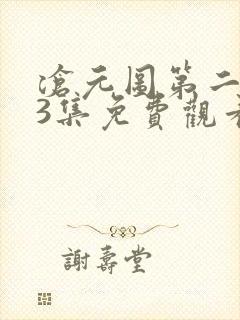 滄元图第二
3集免費觀看
謝壽堂